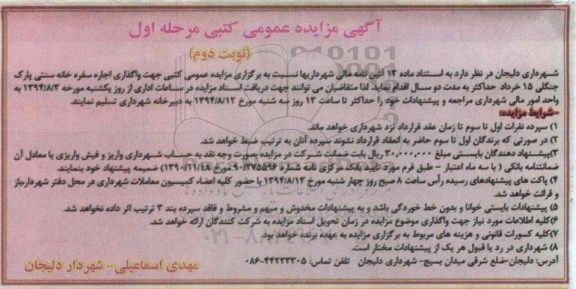 آگهی مزایده عمومی کتبی مرحله اول
(نوبت دوم)
شهرداری دلیجان در نظر دارد به استناد ماده ۱۳ آئین نامه مالی شهرداریها نسبت به برگزاری مزایده عمومی کتبی جهت واگذاری اجاره سفره خانه سنتی پارک
جنگلی ۱۵ خرداد حداکثر به مدت دو سال اقدام نماید. لذا متقاضیان می توانند جهت دریافت اسناد مزایده در ساعات اداری از روز یکشنبه مورخه ۱۳۹۴/۸/۳ به
واحد امور مالی شهرداری مراجعه و پیشنهادات خود را حداکثر تا ساعت ۱۳ روز سه شنبه مورخ ۱۳۹۴/۸/۱۲ به دبیرخانه شهرداری تسلیم نمایند.
شرایط مزایده:
۱) سپرده نفرات اول تا سوم تا زمان عقد قرارداد نزد شهرداری خواهد ماند.
۲) در صورتی که برندگان اول تا سوم حاضر به انعقاد قرارداد نشوند سپرده آنان به ترتیب ضبط خواهد شد.
۳) پیشنهاد دهندگان بایستی مبلغ ۳۰,۰۰۰,۰۰۰ ریال بابت ضمانت شرکت در مزایده بصورت وجه نقد به حساب شهرداری واریز و فیش واریزی یا معادل آن
ضمانتنامه بانکی ( با سه ماه اعتبار - طبق فرم مورد تایید بانک مرکزی نامه شماره ۹۰/۲۷۵۵۹۶ مورخ ۱۳۹۰/۱۱/۱۸) ضمیمه پیشنهاد خود بنمایند.
۴) پاکت های پیشنهادهای رسیده رأس ساعت ۸ صبح روز چهار شنبه مورخ ۱۳۹۴/۸/۱۳ با حضور کلیه اعضاء کمیسیون معاملات شهرداری در محل دفتر شهردار باز
و قرائت خواهد شد
۵) پیشنهادات بایستی خوانا و بدون خط خوردگی باشد و به پیشنهادات مخدوش و مبهم و مشروط و فاقد سپرده بند ۳ ترتیب اثر داده نخواهد شد.
۶) کلیه اطلاعات مورد نیاز جهت واگذاری موضوع مزایده در زمان تحویل اسناد مزایده به شرکت کنندگان ارائه خواهد شد.
۷) کلیه کسورات قانونی و هزینه های مربوط به برگزاری مزایده به عهده برنده خواهد بود.
۸) شهرداری در رد یا قبول هر یک از پیشنهادات مختار است.
آدرس: دلیجان-ضلع شرقی میدان بسیج- شهرداری دلیجان تلفن تماس: ۴۴۲۲۳۳۰۵-۰۸۶
مهدی اسماعیلی- شهردار دلیجان